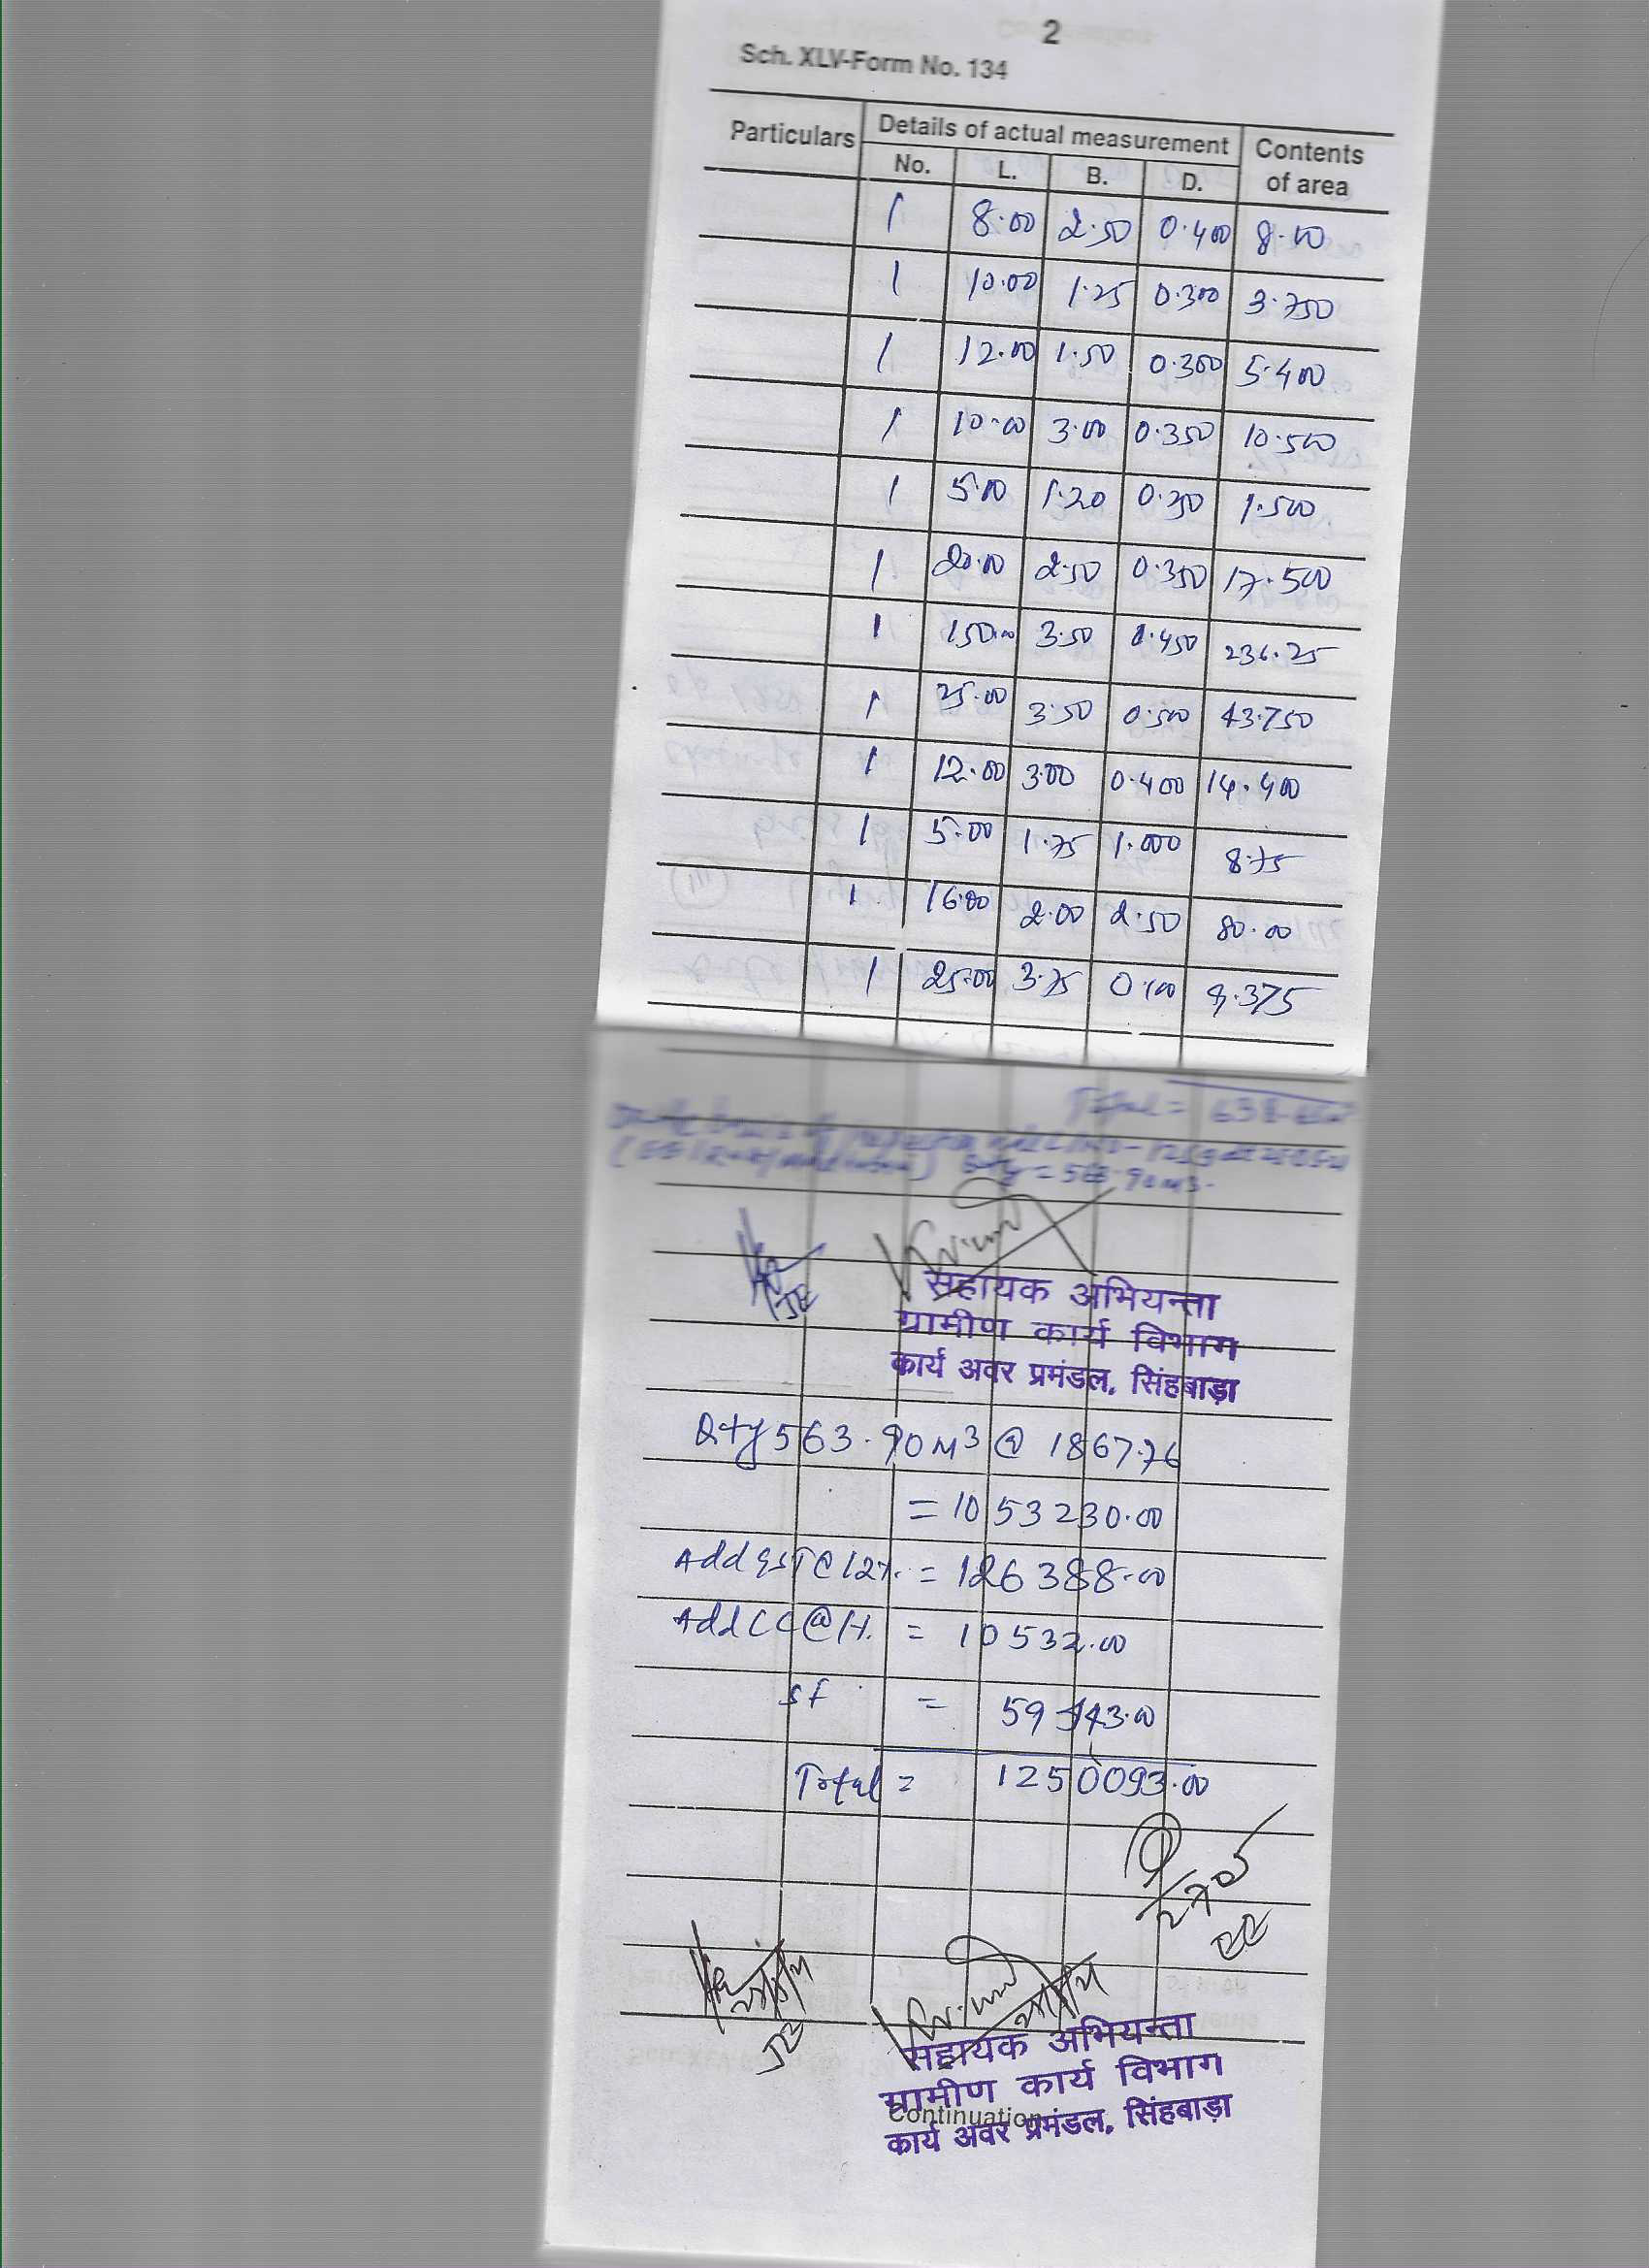 2
Sch. XLV-Form No. 134
Particulars Details of actual measurement Contents of area
No. L. B. D.
1 8.00 2.50 0.400 8.00
1 10.00 1.25 0.300 3.750
1 12.00 1.50 0.300 5.400
1 10.00 3.00 0.350 10.500
1 5.00 1.20 0.250 1.500
1 20.00 2.50 0.350 17.500
1 150.00 3.50 0.450 236.25
1 25.00 3.50 0.500 43.750
1 12.00 3.00 0.400 14.400
1 5.00 1.75 1.000 8.75
1 16.00 2.00 2.50 80.00
1 25.00 3.75 0.100 9.375
Total =
Qty = 563.90 M3.
JE
सहायक अभियन्ता
ग्रामीण कार्य विभाग
कार्य अवर प्रमंडल, सिंहबाड़ा
Qty 563.90 M3 @ 1867.76
= 1053230.00
Add GST @ 12%. = 126388.00
Add LC @ 1%. = 10532.00
SF = 59943.00
Total = 1250093.00
EE
JE
सहायक अभियन्ता
ग्रामीण कार्य विभाग
Continuation
कार्य अवर प्रमंडल, सिंहबाड़ा